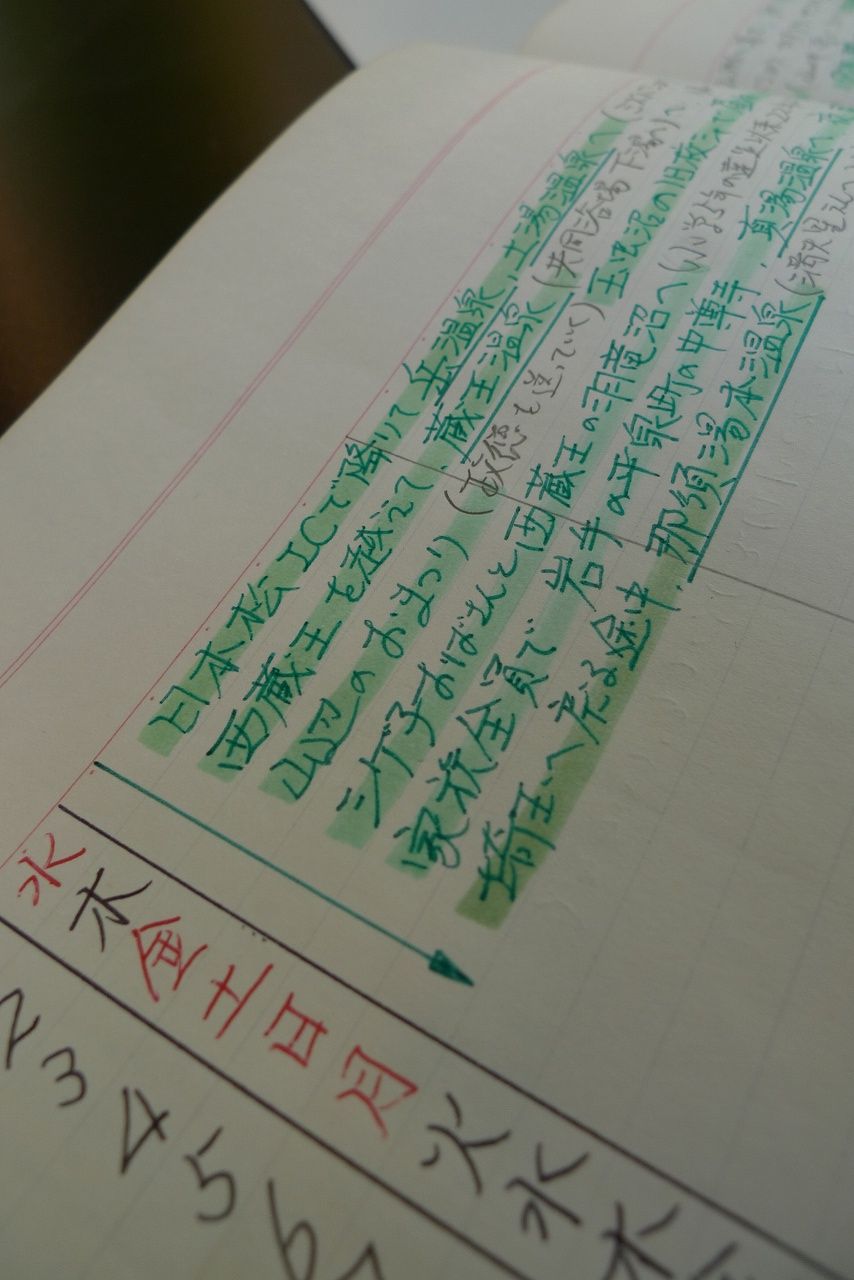 日本松ICで降りて岳温泉、土湯温泉へ
西蔵王を越えて、蔵王温泉(共同浴場下湯へ)へ
山辺のおまつり(政徳を送っていく)玉虫沼の旧
シゲ子おばさんと西蔵王の羽竜沼へ(小学5年の
家族全員で岩手の平泉町の中尊寺、真湯温泉へ
埼玉へ戻る途中、那須湯本温泉(
水 木 金 土 日 月 火 水 木
2 3 4 5 6 7